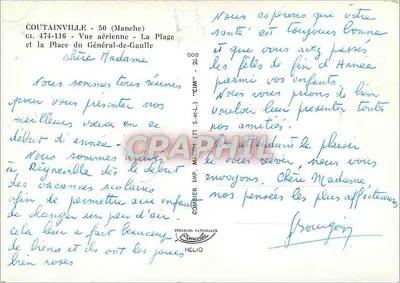 COUTAINVILLE - 50 (Manche)
CI. 474-116 - Vue aérienne - La Plage
et la Place du Général-de-Gaulle
Chère Madame
Nous sommes tous réunis
pour vous présenter nos
meilleurs vœux en ce
début d'année.
Nous sommes
à Régneville dès le début
des vacances scolaires
afin de permettre aux enfants
de changer un peu d'air.
cela leur a fait beaucoup
de biens et ils ont les joues
bien roses
COMBIER IMP. MACON (71 S.-et-L.) "CIM"
COULEURS NATURELLES
Combier
HELIO
Nous espérons que votre
santé est toujours bonne
et que vous avez passés
les fêtes de fin d'Année
parmi vos enfants.
Nous vous prions de bien
vouloir leur présenter toutes
nos amitiés.
En attendant le plaisir
de vous revoir, nous vous
envoyons, Chère Madame
nos pensées les plus affectueuses
CPAPHIL